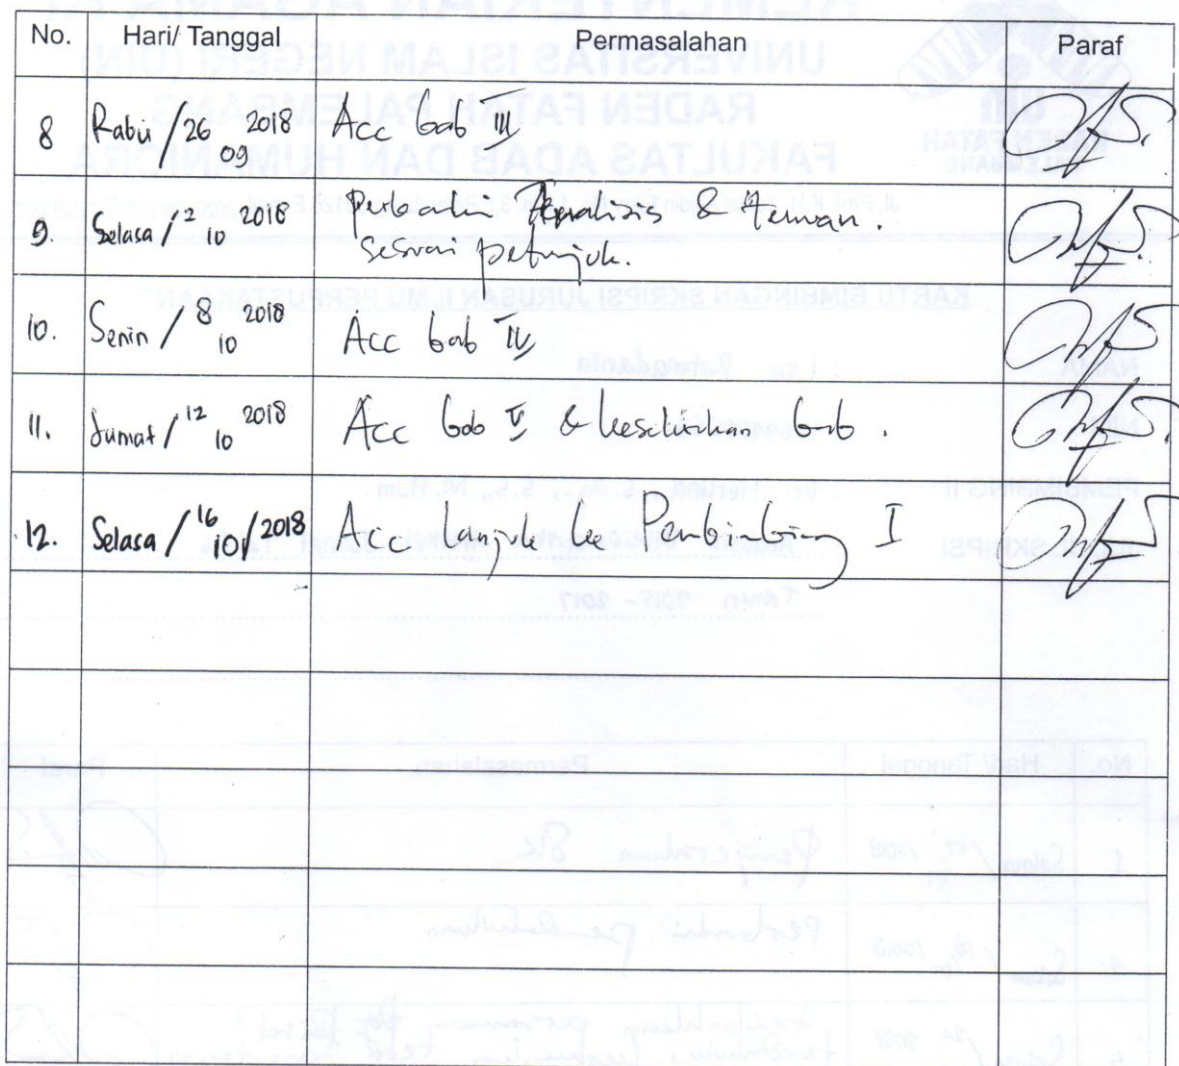 No. Hari/ Tanggal Permasalahan Paraf
8 Rabu / 26 09 2018 Acc bab III
9. Selasa / 2 10 2018 Perbaiki & 
sesuai petunjuk.
10. Senin / 8 10 2018 Acc bab IV
11. Jumat / 12 10 2018 Acc bab V & keseluruhan bab.
12. Selasa / 16 10 / 2018 Acc lanjut ke Pembimbing I